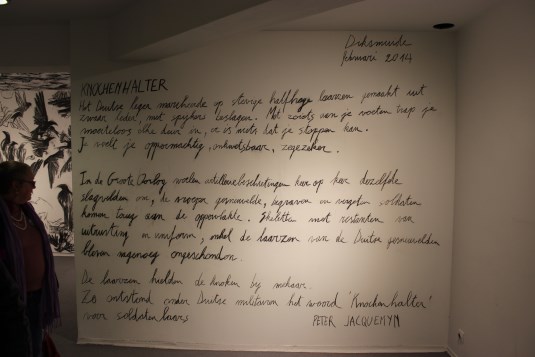 Diksmuide
februari 2014
KNOCHENHALTER
Het Duitse leger marcheerde op stevige halfhoge laarzen gemaakt uit
zwaar leder, met spijkers beslagen. Met zoiets aan je voeten trap je
moeiteloos elke deur in, er is niets dat je stoppen kan.
Je voelt je oppermachtig, onkwetsbaar, zegezeker.
In de Groote Oorlog woelen artilleriebeschietingen keer op keer dezelfde
slagvelden om, de vroeger gesneuvelde, begraven en vergeten soldaten
komen terug aan de oppervlakte. Skeletten met restanten van
uitrusting en uniform, enkel de laarzen van de Duitse gesneuvelden
bleven nagenoeg ongeschonden.
De laarzen hielden de knoken bij mekaar.
Zo ontstond onder Duitse militairen het woord 'Knochenhalter'
voor soldatenlaars
PETER JACQUEMYN